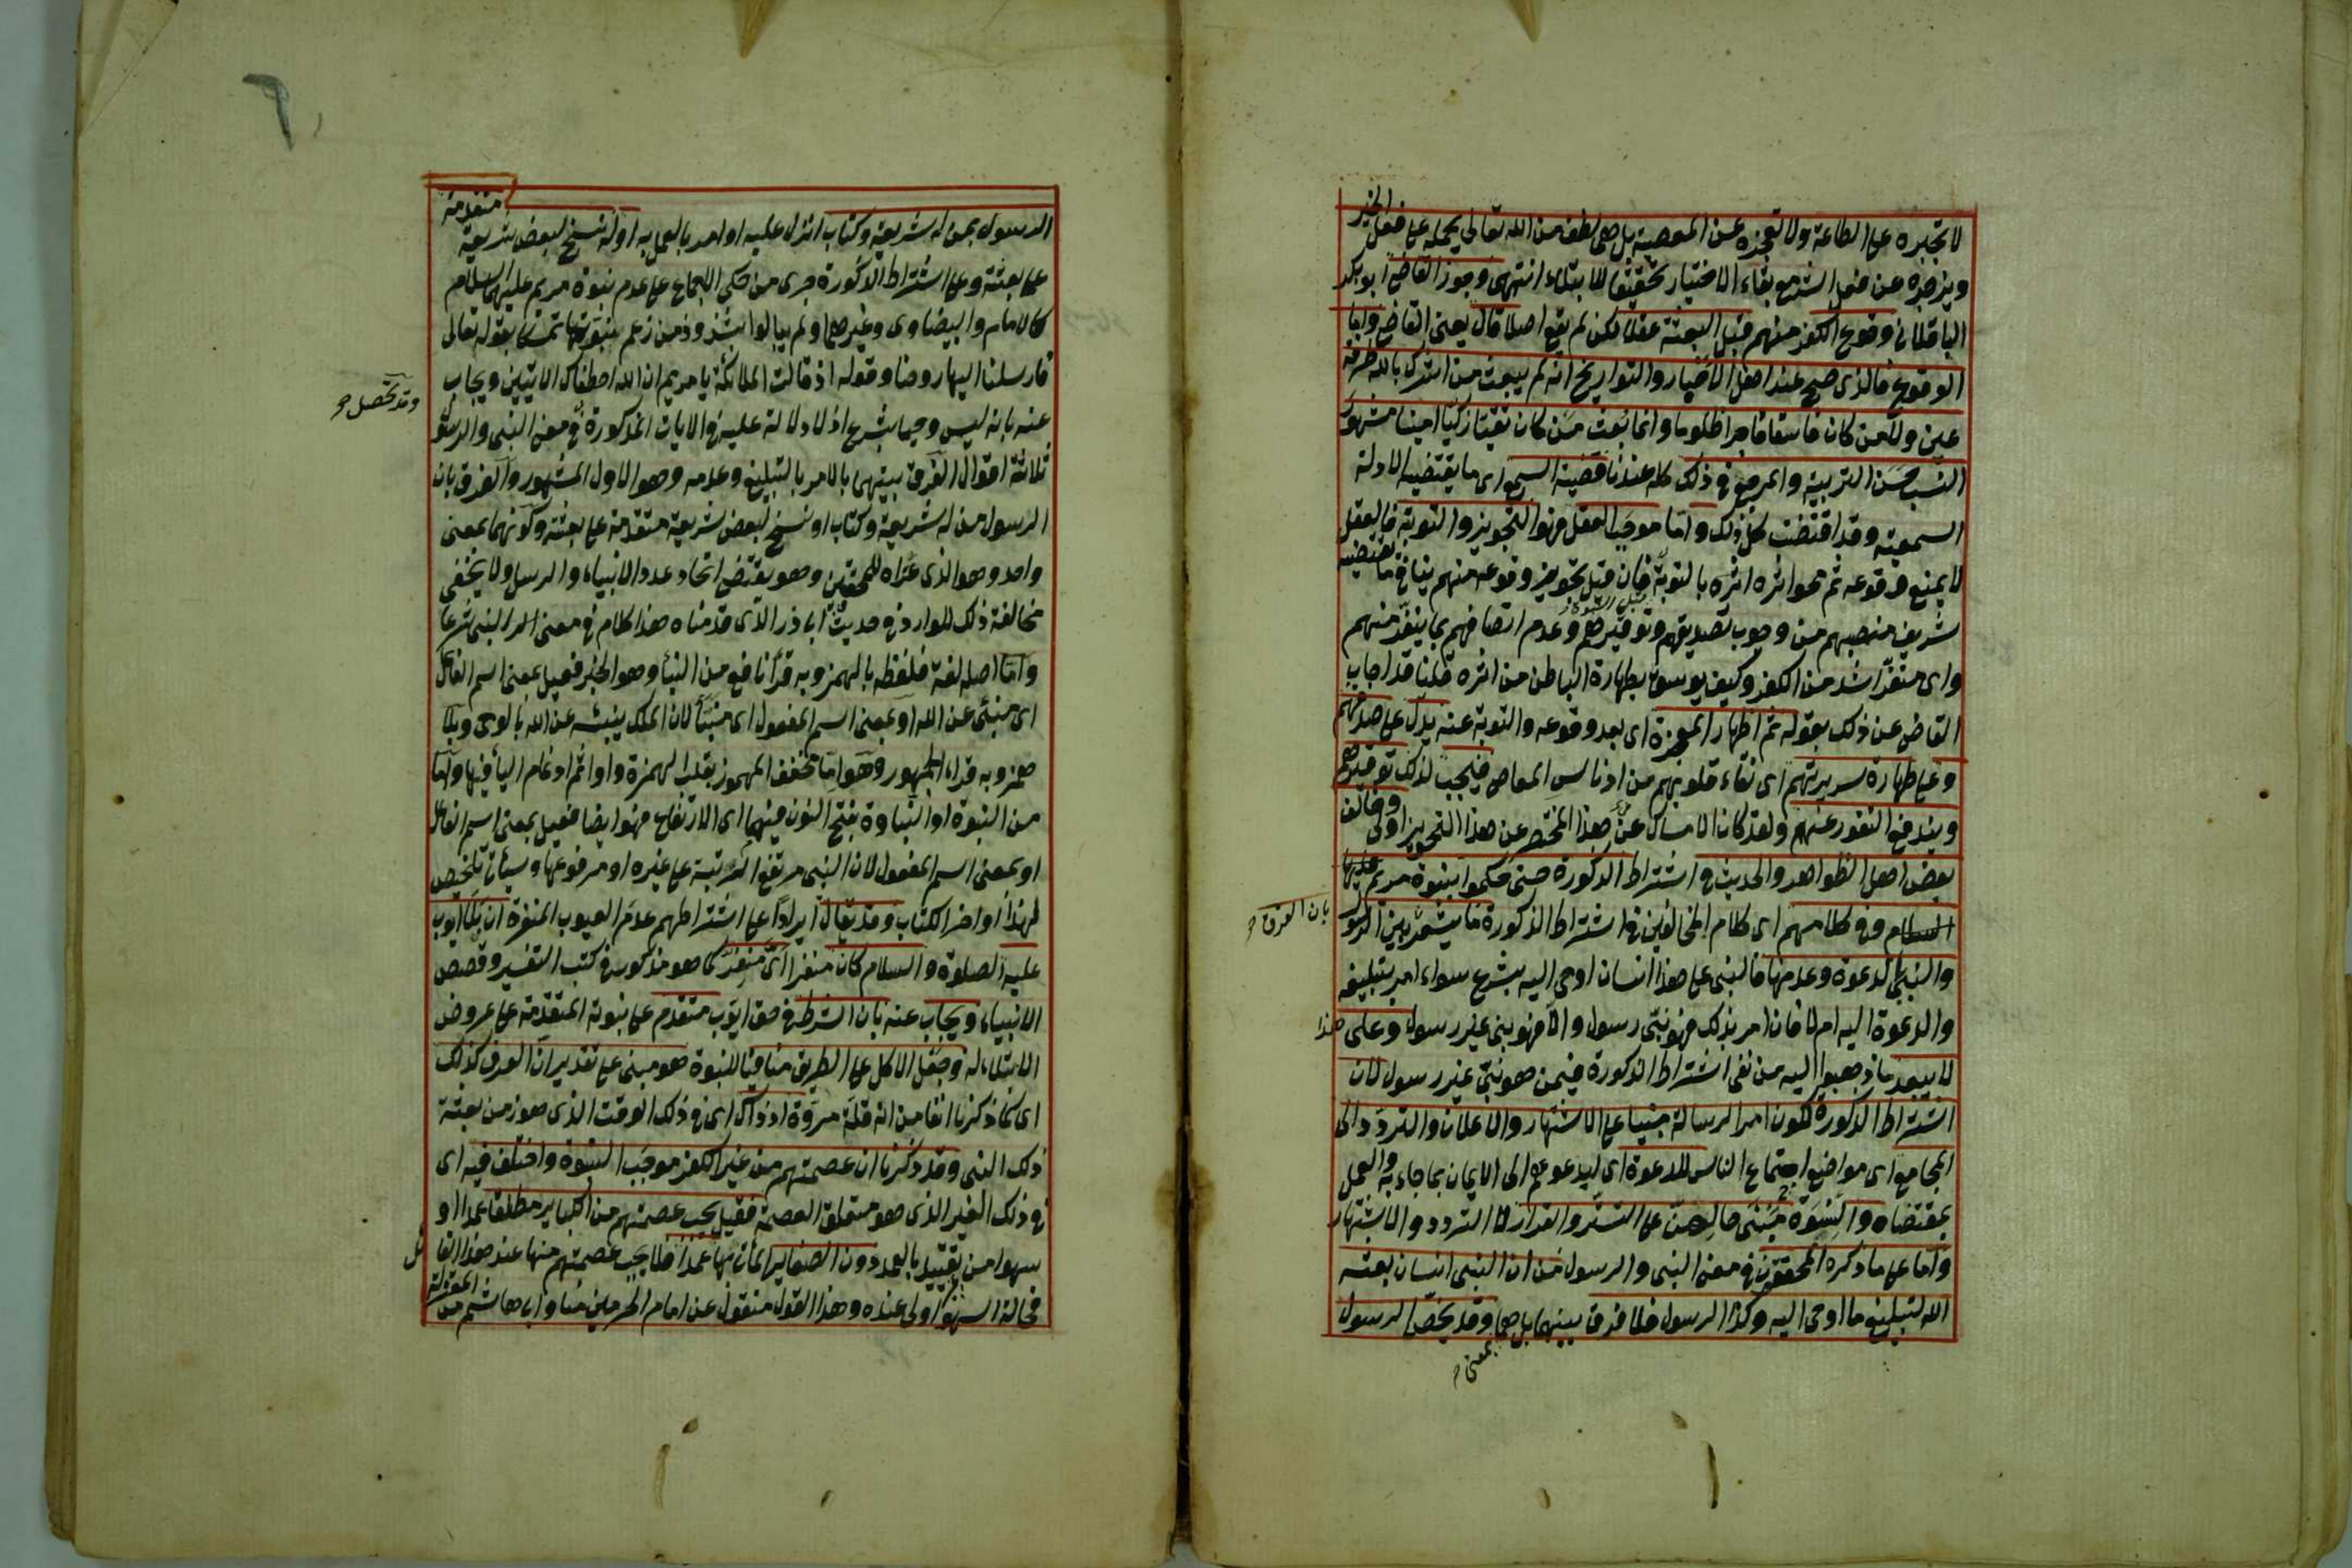 لا تجبره على الطاعة ولا تعجزه عن المعصية بل هي لطف من الله تعالى يحمله على فعل الخير
ويزجره عن فعل الشر مع بقاء الاختيار تحقيقا للابتلاء انتهى وجوز القاضي ابو بكر
الباقلاني وقوع الكفر منهم قبل البعثة عقلا لكن لم يقع اصلا قال يعنى القاضي واما
الوقوع فالذي صح عند اهل الاخبار والتواريخ انه لم يبعث من اشرك بالله طرفة
عين ولا من كان فاسقا فاجرا ظلوما وانما بعث من كان تقيا زكيا امينا مشهور
النسب حسن التربية والمرجع في ذلك كله عندنا قضية السمع اى ما يقتضيه الادلة
السمعية وقد اقتضت كل ذلك واما موجب العقل فهو التجويز والتوبة فالعقل
لا يمنع وقوعه ثم محو اثره بالتوبة فان قيل تجويز وقوعه منهم ينافي ما تقتضيه
شريف منصبهم من وجوب تصديقهم وتوقيرهم قبل النبوة وعدم اتصافهم بما ينفر منهم
واى منفر اشد من الكفر وكيف يوسق بطهارة الباطن من اثره قلنا قد اجاب
القاضي عن ذلك بقوله ثم اظهار المعجزة اى بعد وقوعه والتوبة عنه يدل على صدقهم
وعلى طهارة سريرتهم اى نقاء قلوبهم من ادناس المعاصي فيجب لذلك توقيرهم
ويندفع النفور عنهم ولقد كان الامساك عن هذا المختصر عن هذا التجويز اولى وخالف
بعض اهل الظواهر والحديث في اشتراط الذكورة حتى حكموا بنبوة مريم عليها
السلام وفي كلامهم اى كلام المخالفين في اشتراط الذكورة ما يشعر بين الرسول
بان الفرق
والنبي بالدعوة وعدمها فالنبي على هذا انسان اوحى اليه بشرع سواء امر بتبليغه
والدعوة اليه ام لا فان امر بذلك فهو نبي رسول والا فهو نبي غير رسول وعلى هذا
لا يبعد ما ذهبوا اليه من نفى اشتراط الذكورة فيمن هو نبي غير رسول لان
اشتراط الذكورة لكون امر الرسالة مبنيا على الاشتهار والاعلان والتردد الى
المجامع اى مواضع اجتماع الناس للدعوة اى ليدعوهم الى الايمان بما جاء به والعمل
بمقتضاه والنسوة مبنى حالهن على التستر والقرار لا التردد والاشتهار
واما على ما ذكره المحققون في معنى النبي والرسول من ان النبي انسان بعثه
الله لتبليغ ما اوحى اليه وكذا الرسول فلا فرق بينهما بل هما وقد يخص الرسول
بمعنى
الرسول بمن له شريعة وكتاب انزل عليه او امر بالعمل به او له نسخ لبعض شريعة متقدمة
على بعثته وعلى اشتراط الذكورة جرى من حكى الاجماع على عدم نبوة مريم عليها السلام
كالامام والبيضاوى وغيرهما ولم يبالوا بشذوذ من زعم بنبوتها تمسكا بقوله تعالى
فارسلنا اليها روحنا وقوله اذ قالت الملائكة يا مريم ان الله اصطفاك الايتين ويجاب
عنه بانه ليس وحيا بشرع اذ لا دلالة عليه في الايات المذكورة في معنى النبي والرسول
وقد تحصل
ثلاثة اقوال الفرق بينهما بالامر بالتبليغ وعدمه وهو الاول المشهور والفرق بان
الرسول من له شريعة وكتاب او نسخ لبعض شريعة متقدمة على بعثته وكونهما بمعنى
واحد وهو الذى عزاه للمحققين وهو يقتضي اتحاد عدد الانبياء والرسل ولا يخفى
مخالفة ذلك للوارد في حديث ابا ذر الذى قدمناه هذا كلام في معنى النبي شرعا
واما اصله لغة فلفظه بالهمز وبه قرأ نافع من النبأ وهو الخبر فعيل بمعنى اسم الفاعل
اى منبئ عن الله او بمعنى اسم المفعول اى منبأ لان الملك ينبئه عن الله بالوحى وبلا
همز وبه قراء الجمهور وهو اما مخفف المهموز بقلب الهمزة واوا ثم ادغام الياء فيها واما
من النبوة او النباوة بفتح النون فيهما اى الارتفاع فهو ايضا فعيل بمعنى اسم الفاعل
او بمعنى اسم المفعول لان النبي مرتفع الرتبة على غيره او مرفوعها وسيأتى تلخيص
لهذا اواخر الكتاب وقد يقال ايرادا على اشتراطهم عدم العيوب المنفرة ان بلاء ايوب
عليه الصلوة والسلام كان منفرا اى منفر كما هو مذكور في كتب التفسير وقصص
الانبياء ويجاب عنه بان الشرط في حق ايوب متقدم على نبوته المتقدمة على عروض
الابتلاء له وجعل الاكل على الطريق منافيا للنبوة هو مبنى على تقدير ان العرف كذلك
اى كما ذكرنا انفا من انه قلة مروة اذ ذاك اى في ذلك الوقت الذى هو زمن بعثة
ذلك النبي وقد ذكرنا ان عصمتهم من غير الكفر موجب النبوة واختلف فيه اى
في ذلك الغير الذى هو متعلق العصمة فقيل يجب عصمتهم من الكباير مطلقا عمدا او
سهوا من تقييد بالعمد دون الصغاير المأتى بها عمدا فلا يجب عصمتهم منها عند هذا القائل
فحالة السهو اولى عنده وهذا القول منقول عن امام الحرمين منا وابى هاشم من المعتزلة